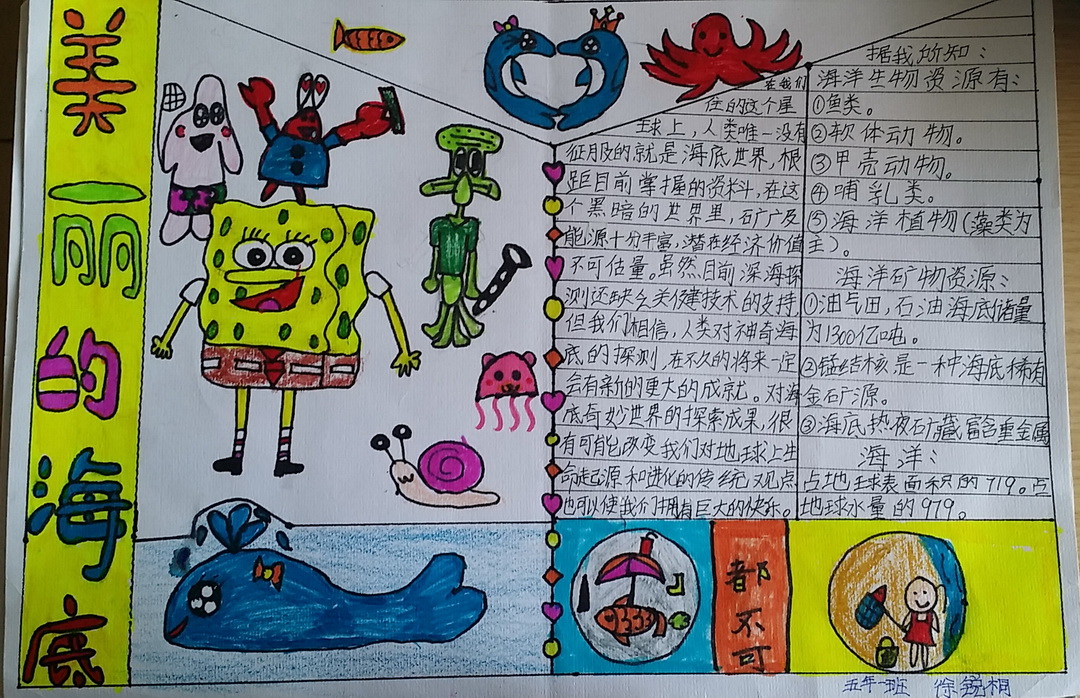 美
丽
的
海
底
在我们
住的这个星
球上，人类唯一没有
征服的就是海底世界，根
距目前掌握的资料，在这
个黑暗的世界里，矿广及
能源十分丰富，潜在经济价值
不可估量。虽然目前深海探
测还缺乏关健技术的支持，
但我们相信，人类对神奇海
底的探测，在不久的将来一定
会有新的更大的成就。对海
底奇妙世界的探索成果，很
有可能改变我们对地球上生
命起源和进化的传统观点
也可以使我们拥有巨大的快乐。
据我所知：
海洋生物资源有：
①鱼类。
②软体动物。
③甲壳动物。
④哺乳类。
⑤海洋植物（藻类为
主）。
海洋矿物资源：
①油气田，石油海底储量
为1300亿吨。
②锰结核是一种海底稀有
金石矿源。
③海底热液矿藏富含重金属
海洋：
占地球表面积的719。占
地球水量的979。
都
不
可
五年一班 徐锐相